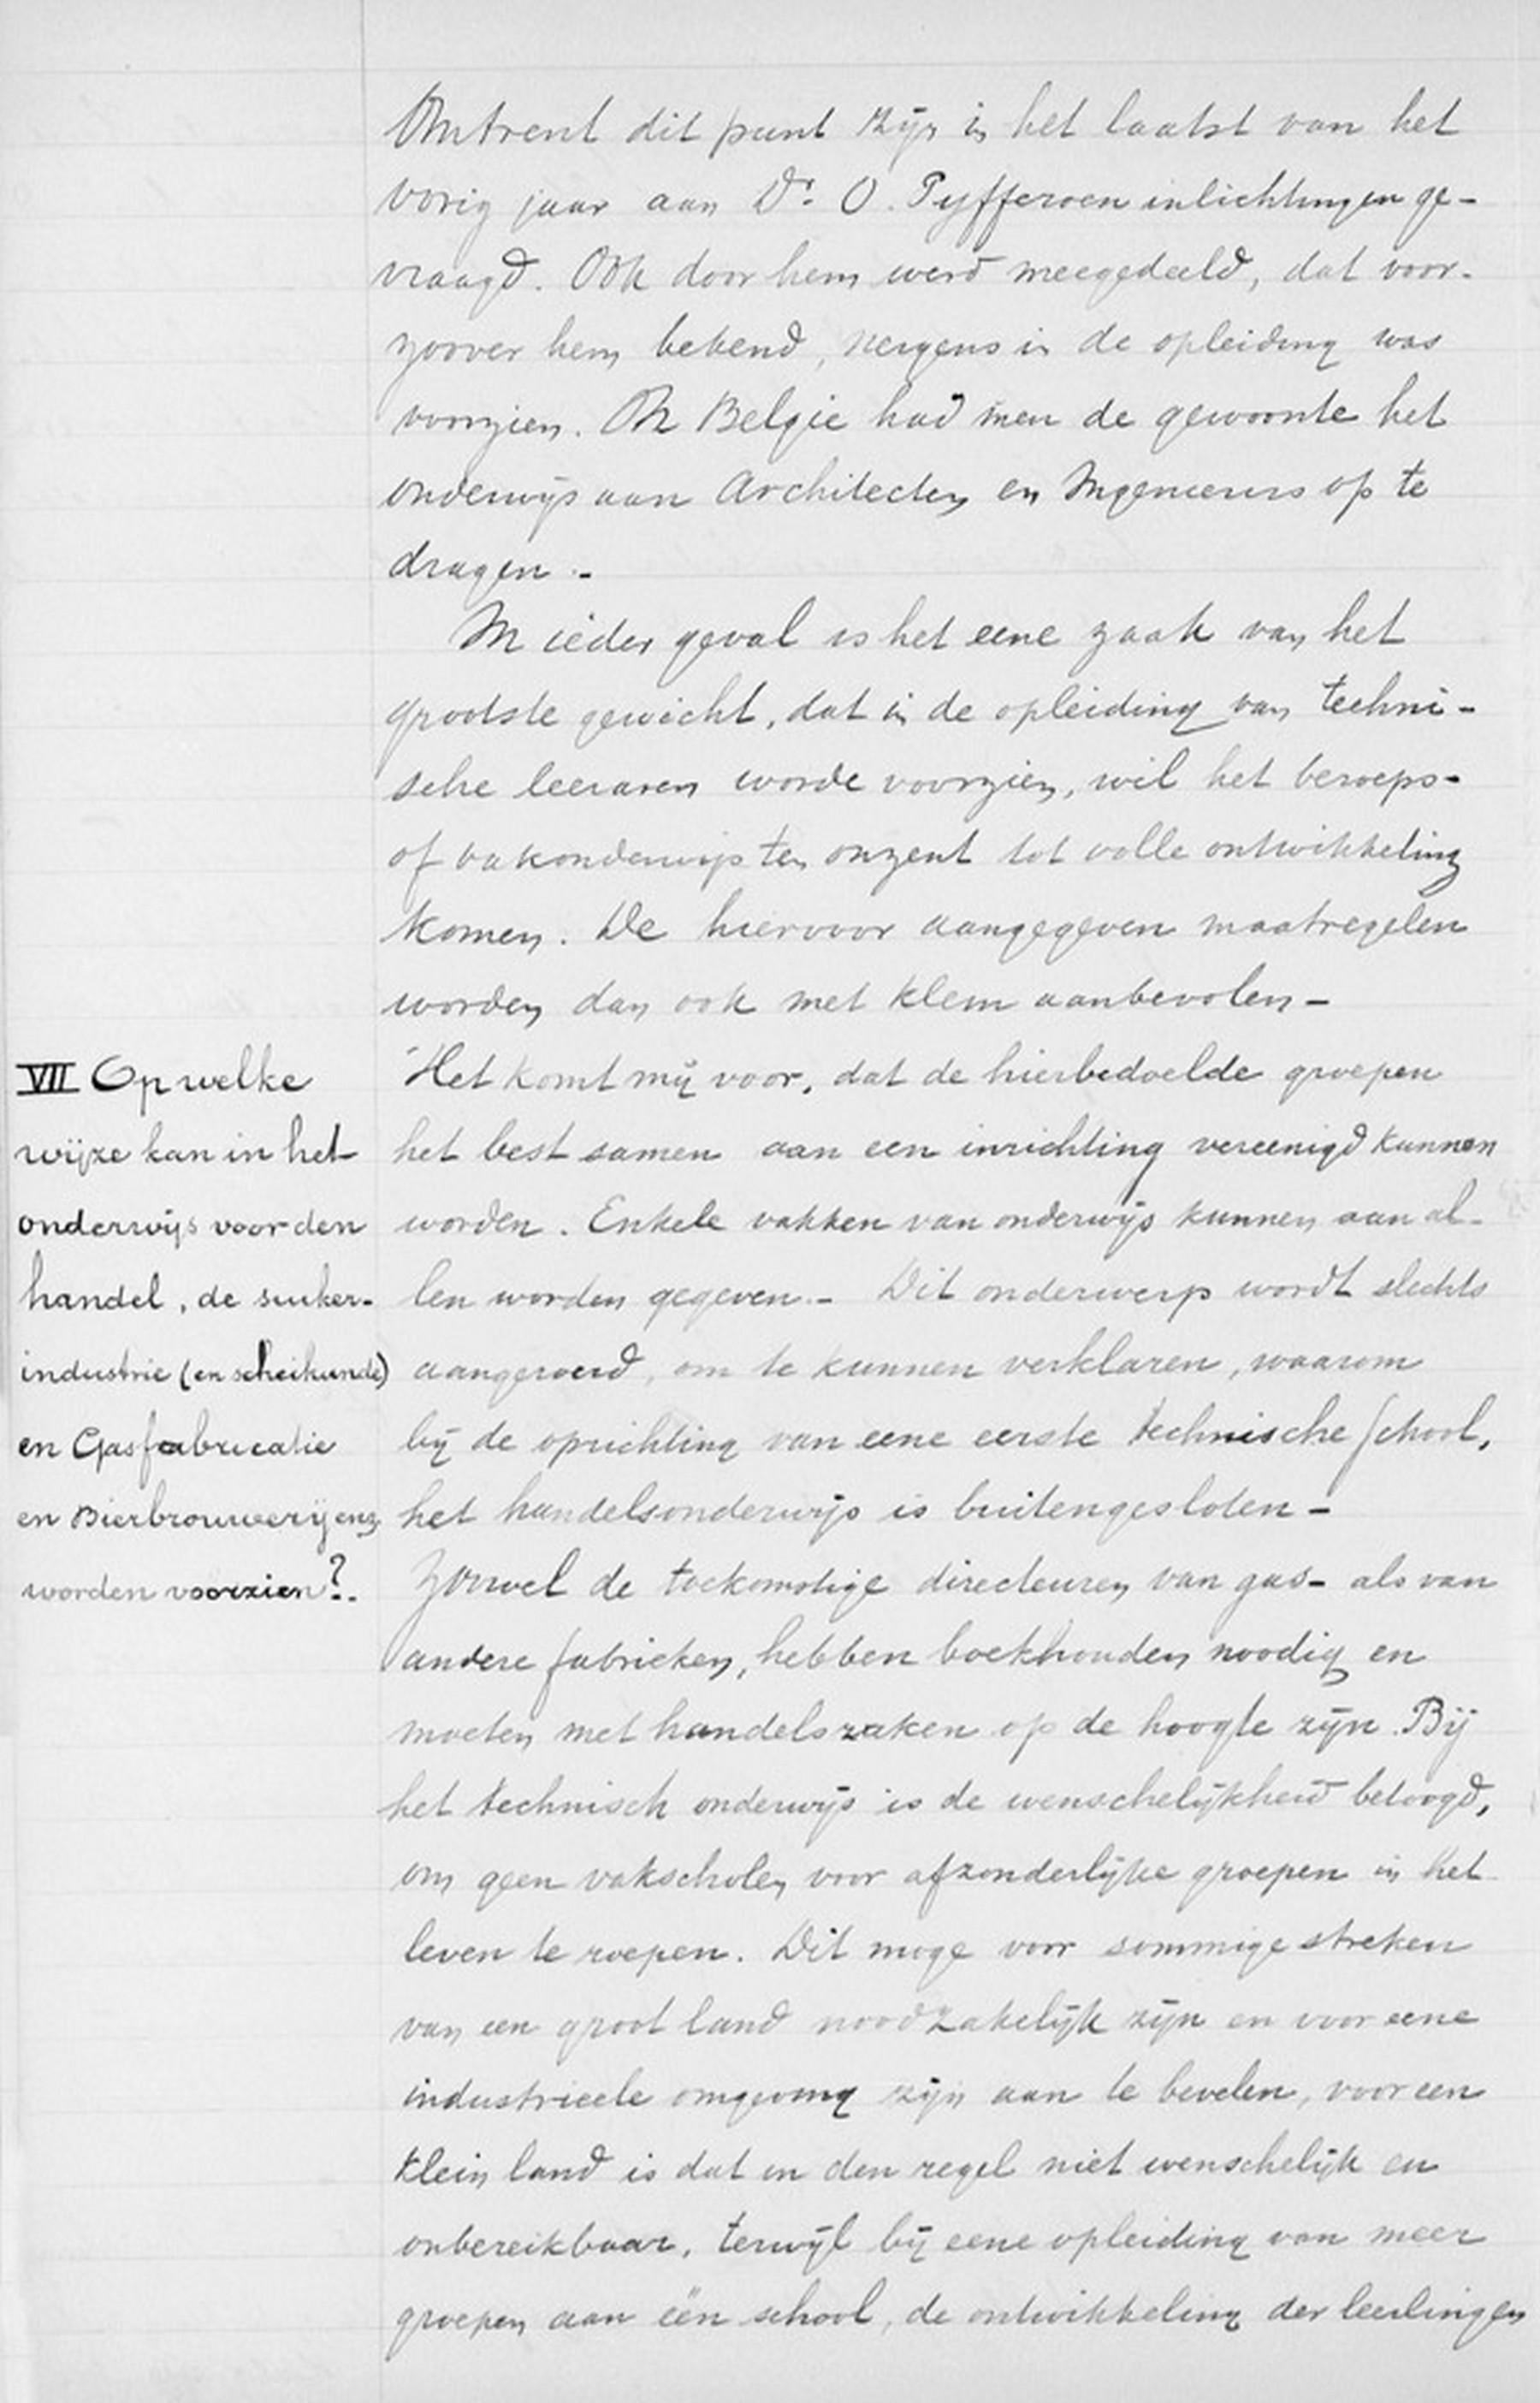 Omtrent dit punt zijn in het laatst van het
vorig jaar aan Dr. O. Pyfferoen inlichtingen ge-
vraagd. Ook door hem werd meegedeeld, dat voor-
zoover hem bekend, nergens in de opleiding was
voorzien. In Belgie had men de gewoonte het
onderwijs aan Architecten en Ingenieurs op te
dragen.-
In ieder geval is het eene zaak van het
grootste gewicht, dat in de opleiding van techni-
sche leeraren worde voorzien, wil het beroeps-
of vakonderwijs ten onzent tot volle ontwikkeling
komen. De hiervoor aangegeven maatregelen
worden dan ook met klem aanbevolen-
VII Op welke
wijze kan in het
onderwijs voor den
handel, de suiker-
industrie (en scheikunde)
en Gasfabricatie
en Bierbrouwerij enz
worden voorzien?.
Het komt mij voor, dat de hierbedoelde groepen
het best samen aan een inrichting vereenigd kunnen
worden. Enkele vakken van onderwijs kunnen aan al-
len worden gegeven.- Dit onderwerp wordt slechts
aangeroerd, om te kunnen verklaren, waarom
bij de oprichting van eene eerste technische School,
het handelsonderwijs is buitengesloten-
Zoowel de toekomstige directeuren van gas- als van
andere fabrieken, hebben boekhouden noodig en
moeten met handelszaken op de hoogte zijn. Bij
het technisch onderwijs is de wenschelijkheid betoogd,
om geen vakscholen voor afzonderlijke groepen in het
leven te roepen. Dit moge voor sommige streken
van een groot land noodzakelijk zijn en voor eene
industrieele omgeving zijn aan te bevelen, voor een
klein land is dat in den regel niet wenschelijk en
onbereikbaar, terwijl bij eene opleiding van meer
groepen aan één school, de ontwikkeling der leerlingen